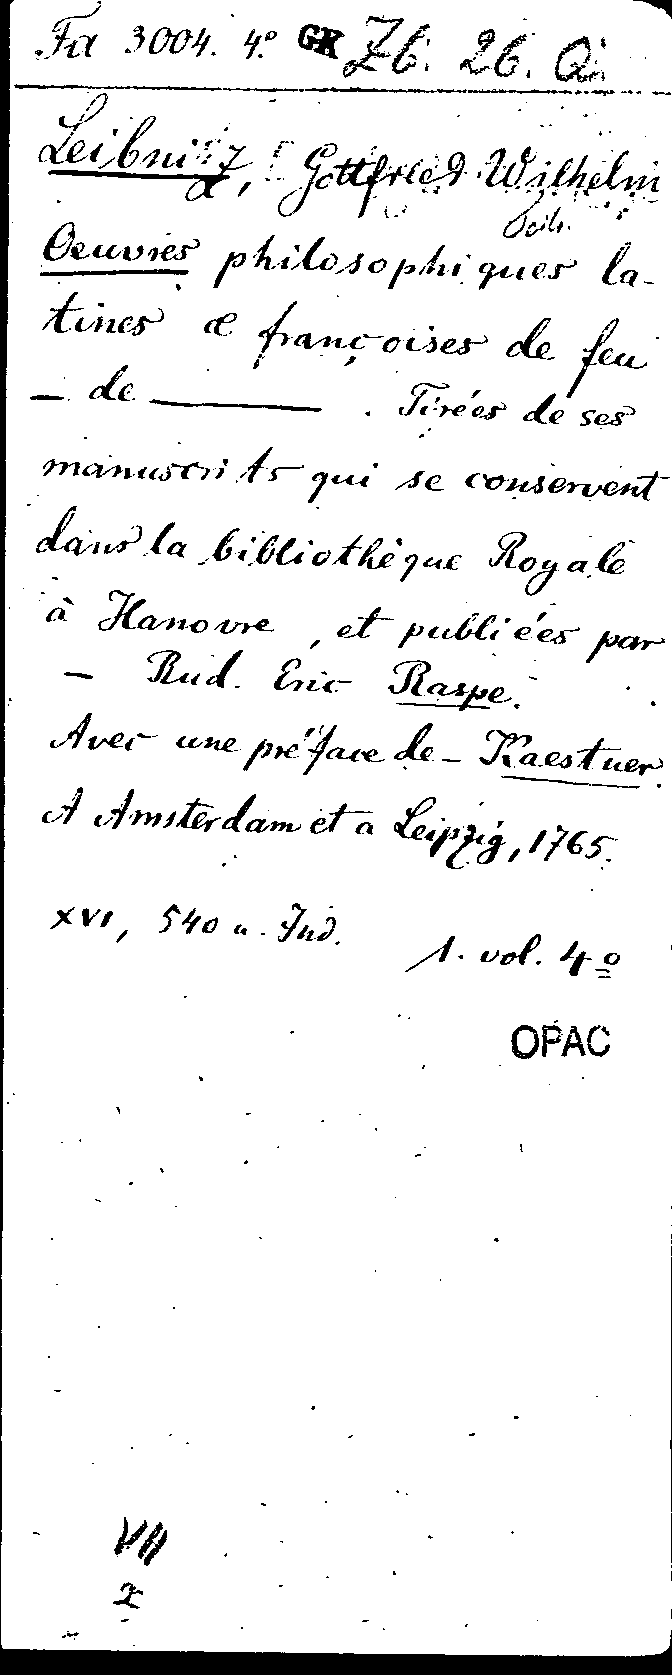 Fa 3004. 4.º GK Zb. 26. Qi.
Leibniz, Gottfried Wilhelm
Oeuvres philosophiques la-
tines & françoises de feu
— de ——— . Tirées de ses
manuscrits qui se conservent
dans la bibliothèque Royale
à Hanovre, et publiées par
— Rud. Eric Raspe.
Avec une préface de — Kaestner.
A Amsterdam et a Leipzig, 1765.
XVI, 540 u. Ind.
1. vol. 4º
OPAC
VII